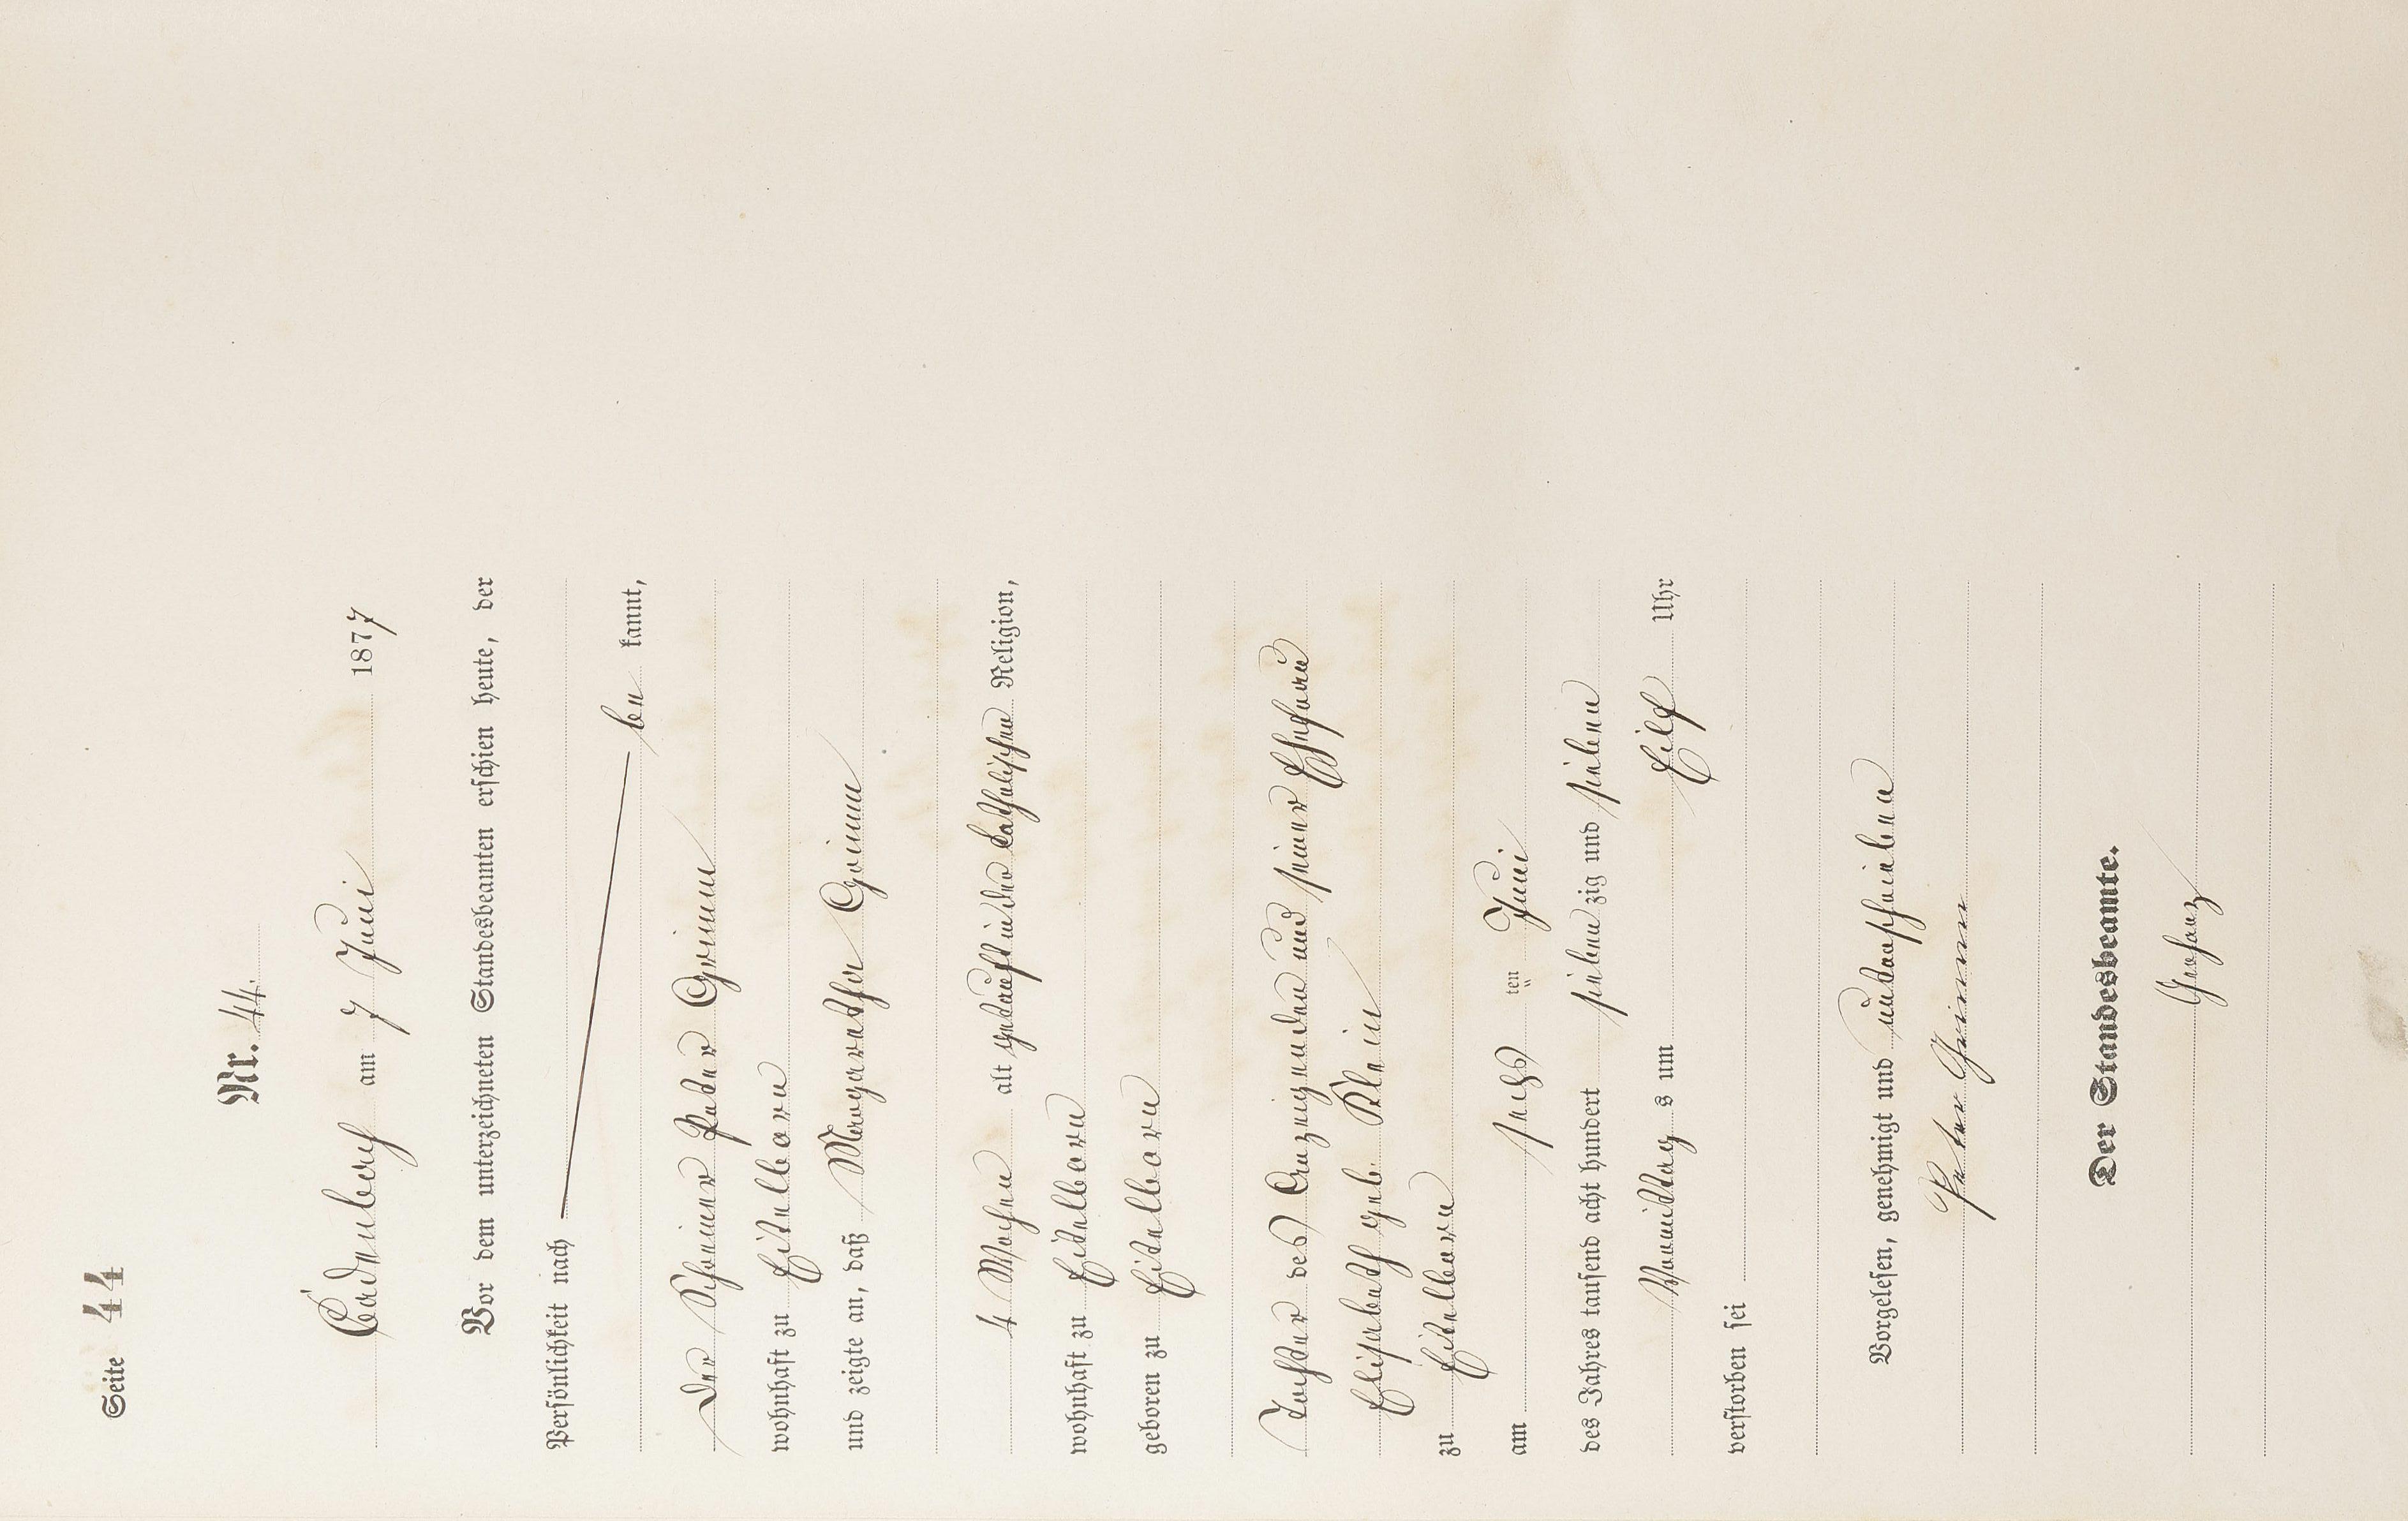 Seite 44
Nr. 44.
Cadenbach am 7 Juni 1877
Vor dem unterzeichneten Standesbeamten erschien heute, der
Persönlichkeit nach
be kannt,
der Schreiner Peter Grimm
wohnhaft zu Eitelborn
und zeigte an, daß Margaretha Grimm
4 Wochen alt getauft in der katholischen Religion,
wohnhaft zu Eitelborn
geboren zu Eitelborn
Tochter des Anzeigenden und seiner Ehefrau
Elisabeth geb. Klein
zu Eitelborn
am sechs ten Juni
des Jahres tausend acht hundert sieben zig und sieben
Vormittag s um Eilf Uhr
verstorben sei
Vorgelesen, genehmigt und unterschrieben
Peter Grimm
Der Standesbeamte.